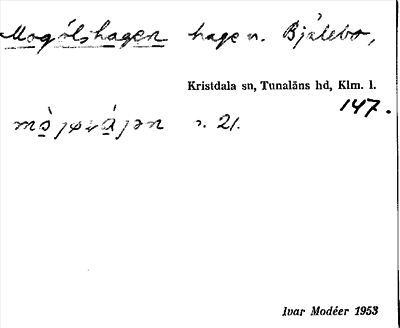 Mogölshagen hage v. Bjälebo,
Kristdala sn, Tunaläns hd, Klm. l.
147.
s. 21.
Ivar Modéer 1953